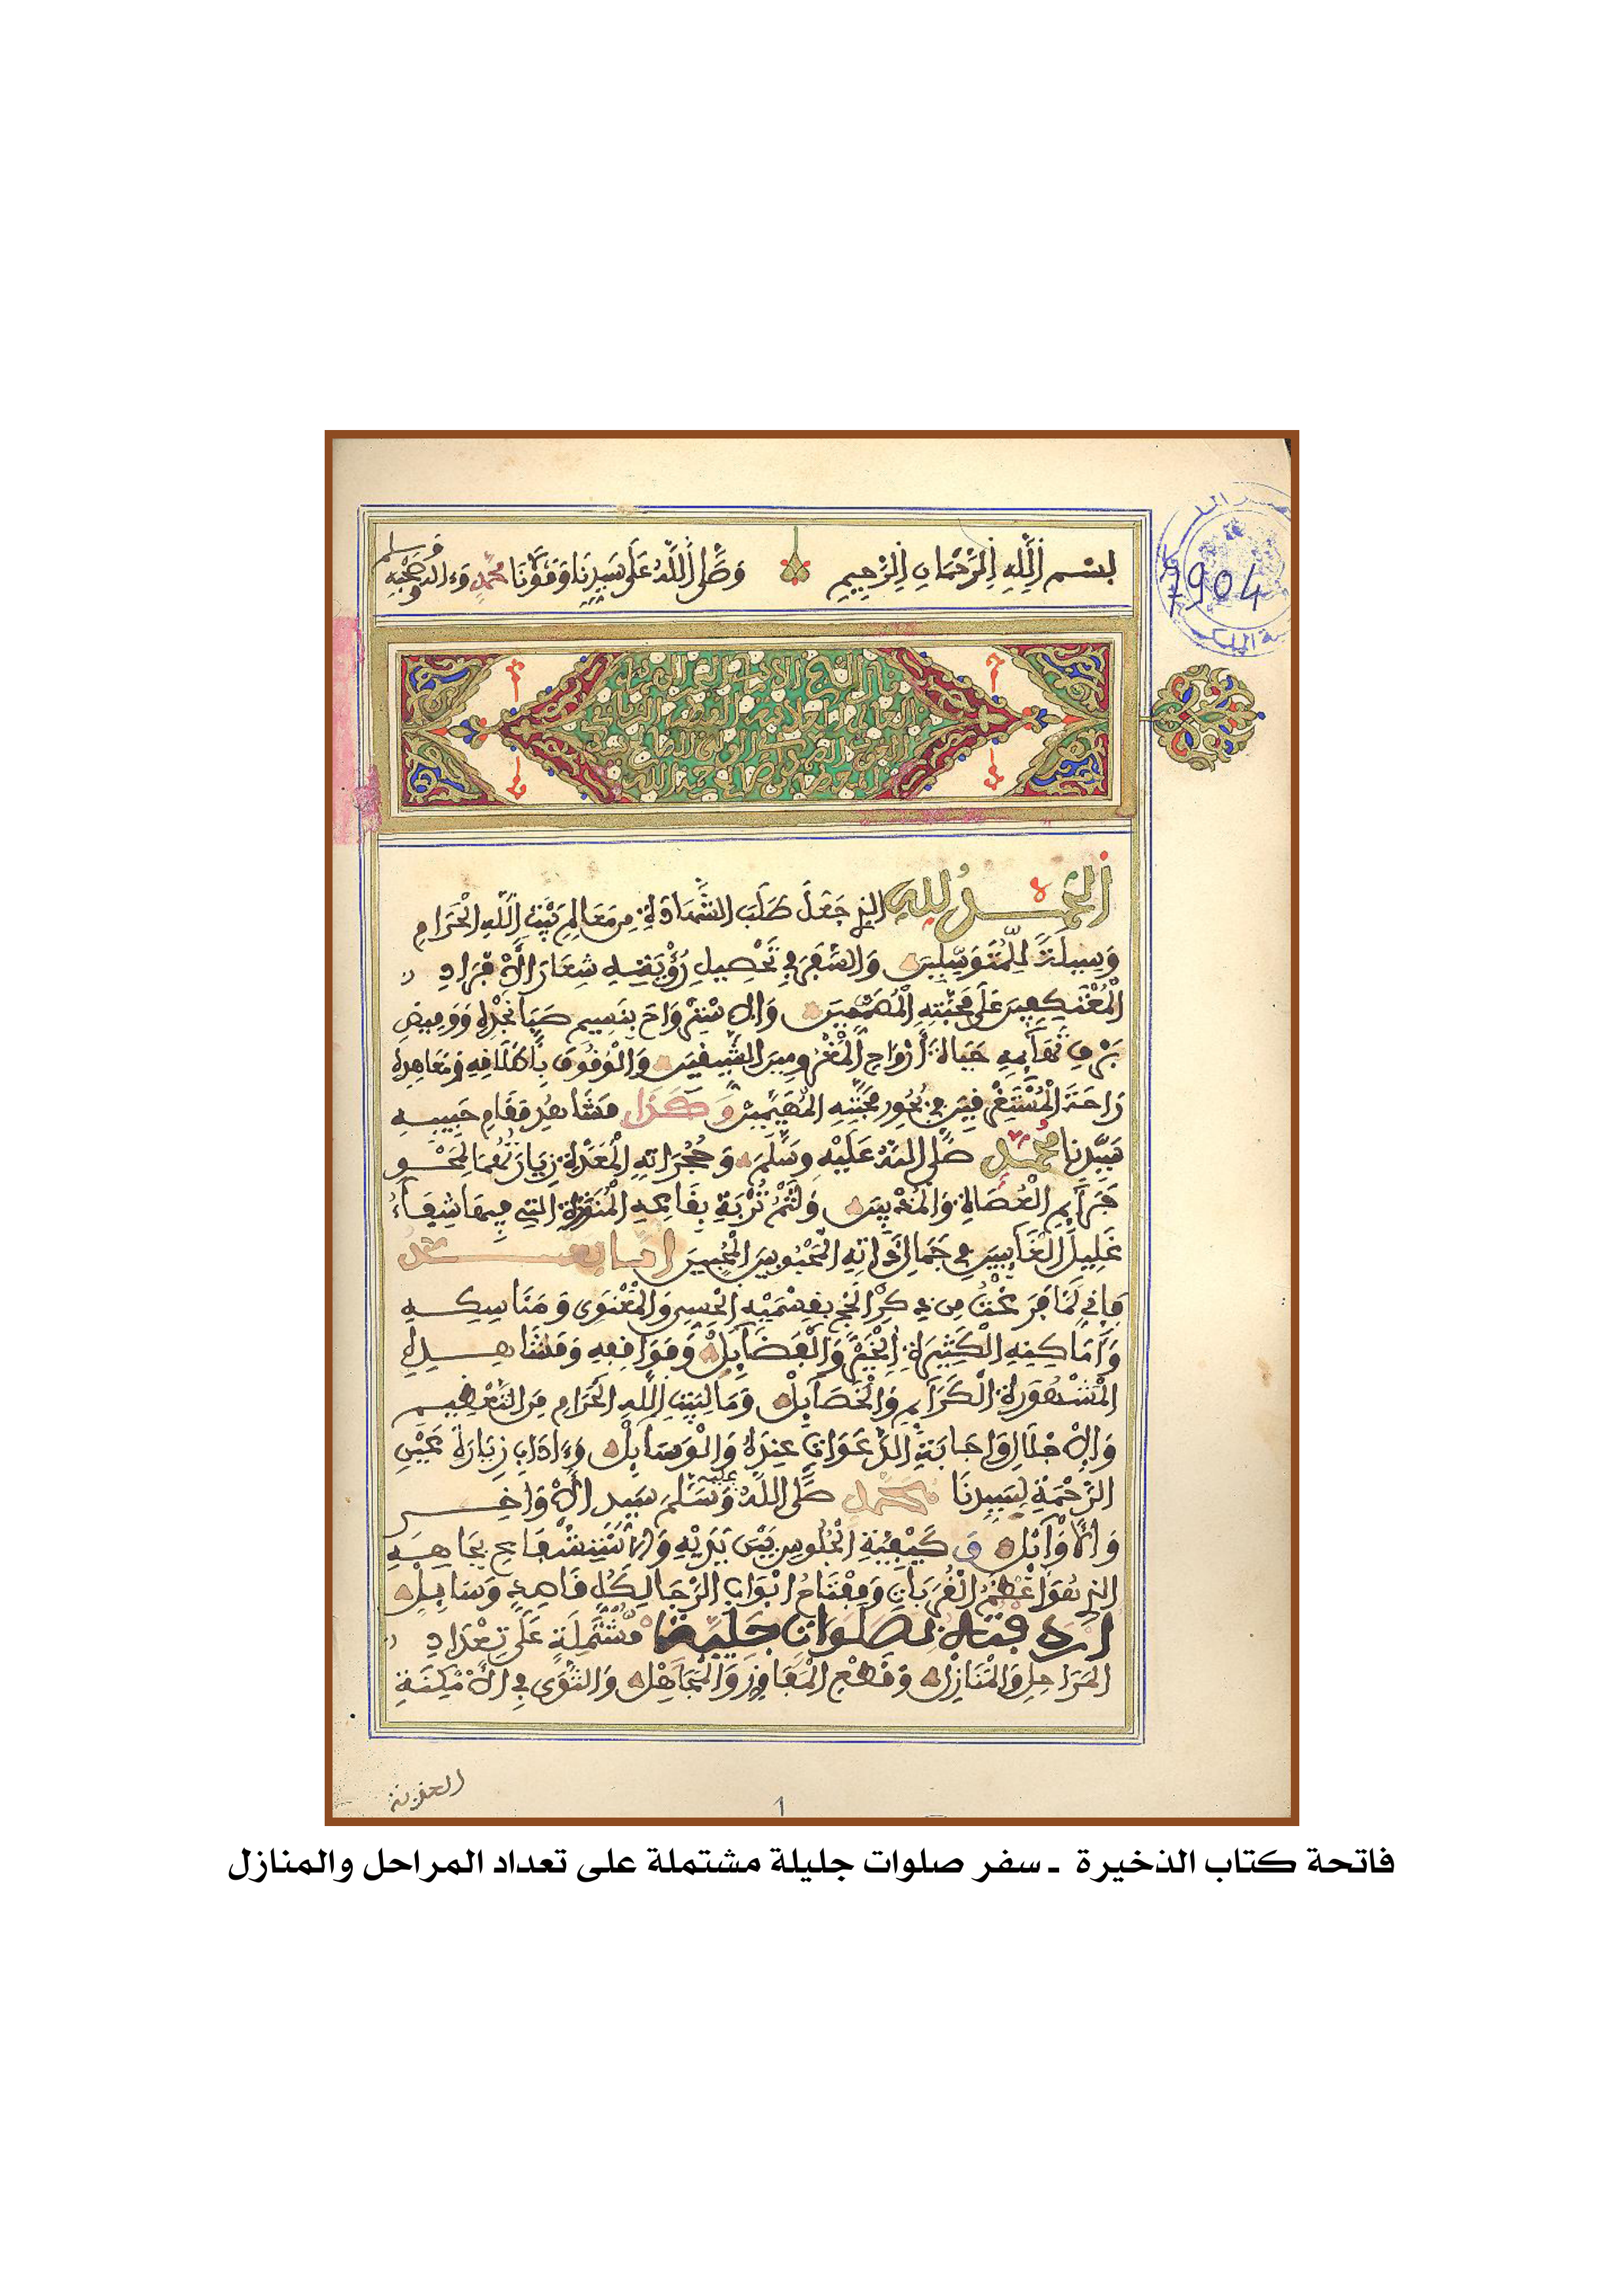 بسم الله الرحمان الرحيم وصلى الله على سيدنا ومولانا محمد وءاله وصحبه وسلم
7904
الحمد لله الذي جعل طلب الشهادة من معالم بيت الله الحرام
وسيلة للمتوسلين والسفر في تحصيل رؤيته شعار الافراد
المعتكفين على محبته المصممين والاستنرواح بنسيم صبا نجده ووميض
برق تهامه حياة أرواح المغرومين الشيقين والوقوف بأطلاله ومعاهده
راحة المستغرقين في بحور محبته المهيمين وكذا مشاهد مقام حبيبه
سيدنا محمد صلى الله عليه وسلم وحجراته المعدة زيارتها لمحو
جرآيم العصاة والمذنبين ولثم تربة بقاعه المنورة التي فيها شفاء
غليل الغآيبين في جمال ذاته المحبوبين المحبين اما بعد
فإني لما فرغت من ذكر الحج بقسميه الحسي والمعنوي ومناسكه
وأماكنه الكثيرة الخير والفضآيل ومواقفه ومشاهده
المشهورة الكرآيم والخصآيل وما لبيت الله الحرام من التعظيم
والاجلال وإجابة الدعوات عنده والوسايل وءاداب زيارة عين
الرحمة لسيدنا محمد صلى الله عليه وسلم سيد الأواخر
والأوآيل وكيفية الجلوس بين يديه والاستشفاع بجاهه
الذي هو أعظم القربات ومفتاح أبواب الرجا لكل قاصد وسايل
اردفته بصلوات جليلة مشتملة على تعداد
المراحل والمنازل وقطع المفاوز والمجاهل والثوى في الأمكنة
1
فاتحة كتاب الذخيرة ـ سفر صلوات جليلة مشتملة على تعداد المراحل والمنازل